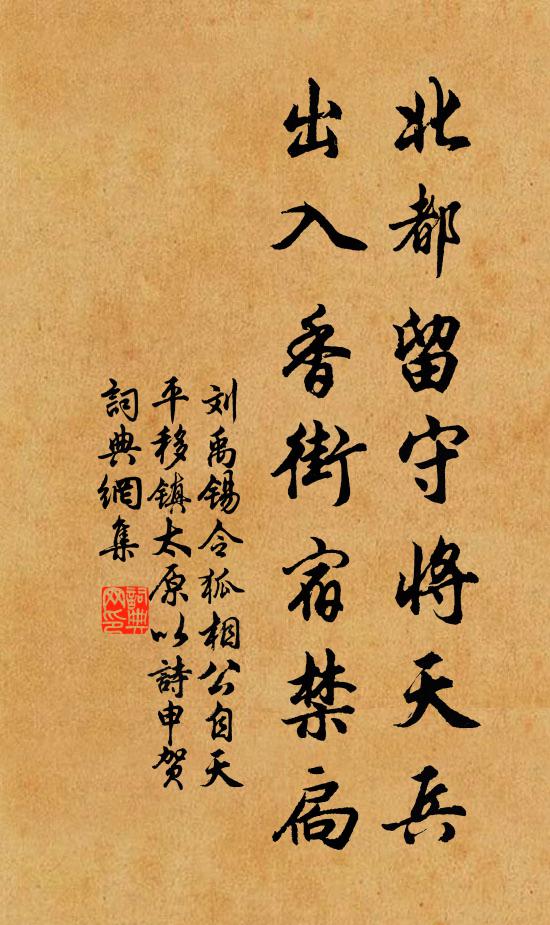 北都留守将天兵
出入香街宿禁扃
刘禹锡令狐相公自天
平移镇太原以詩申贺
詞典網集
詞典網印